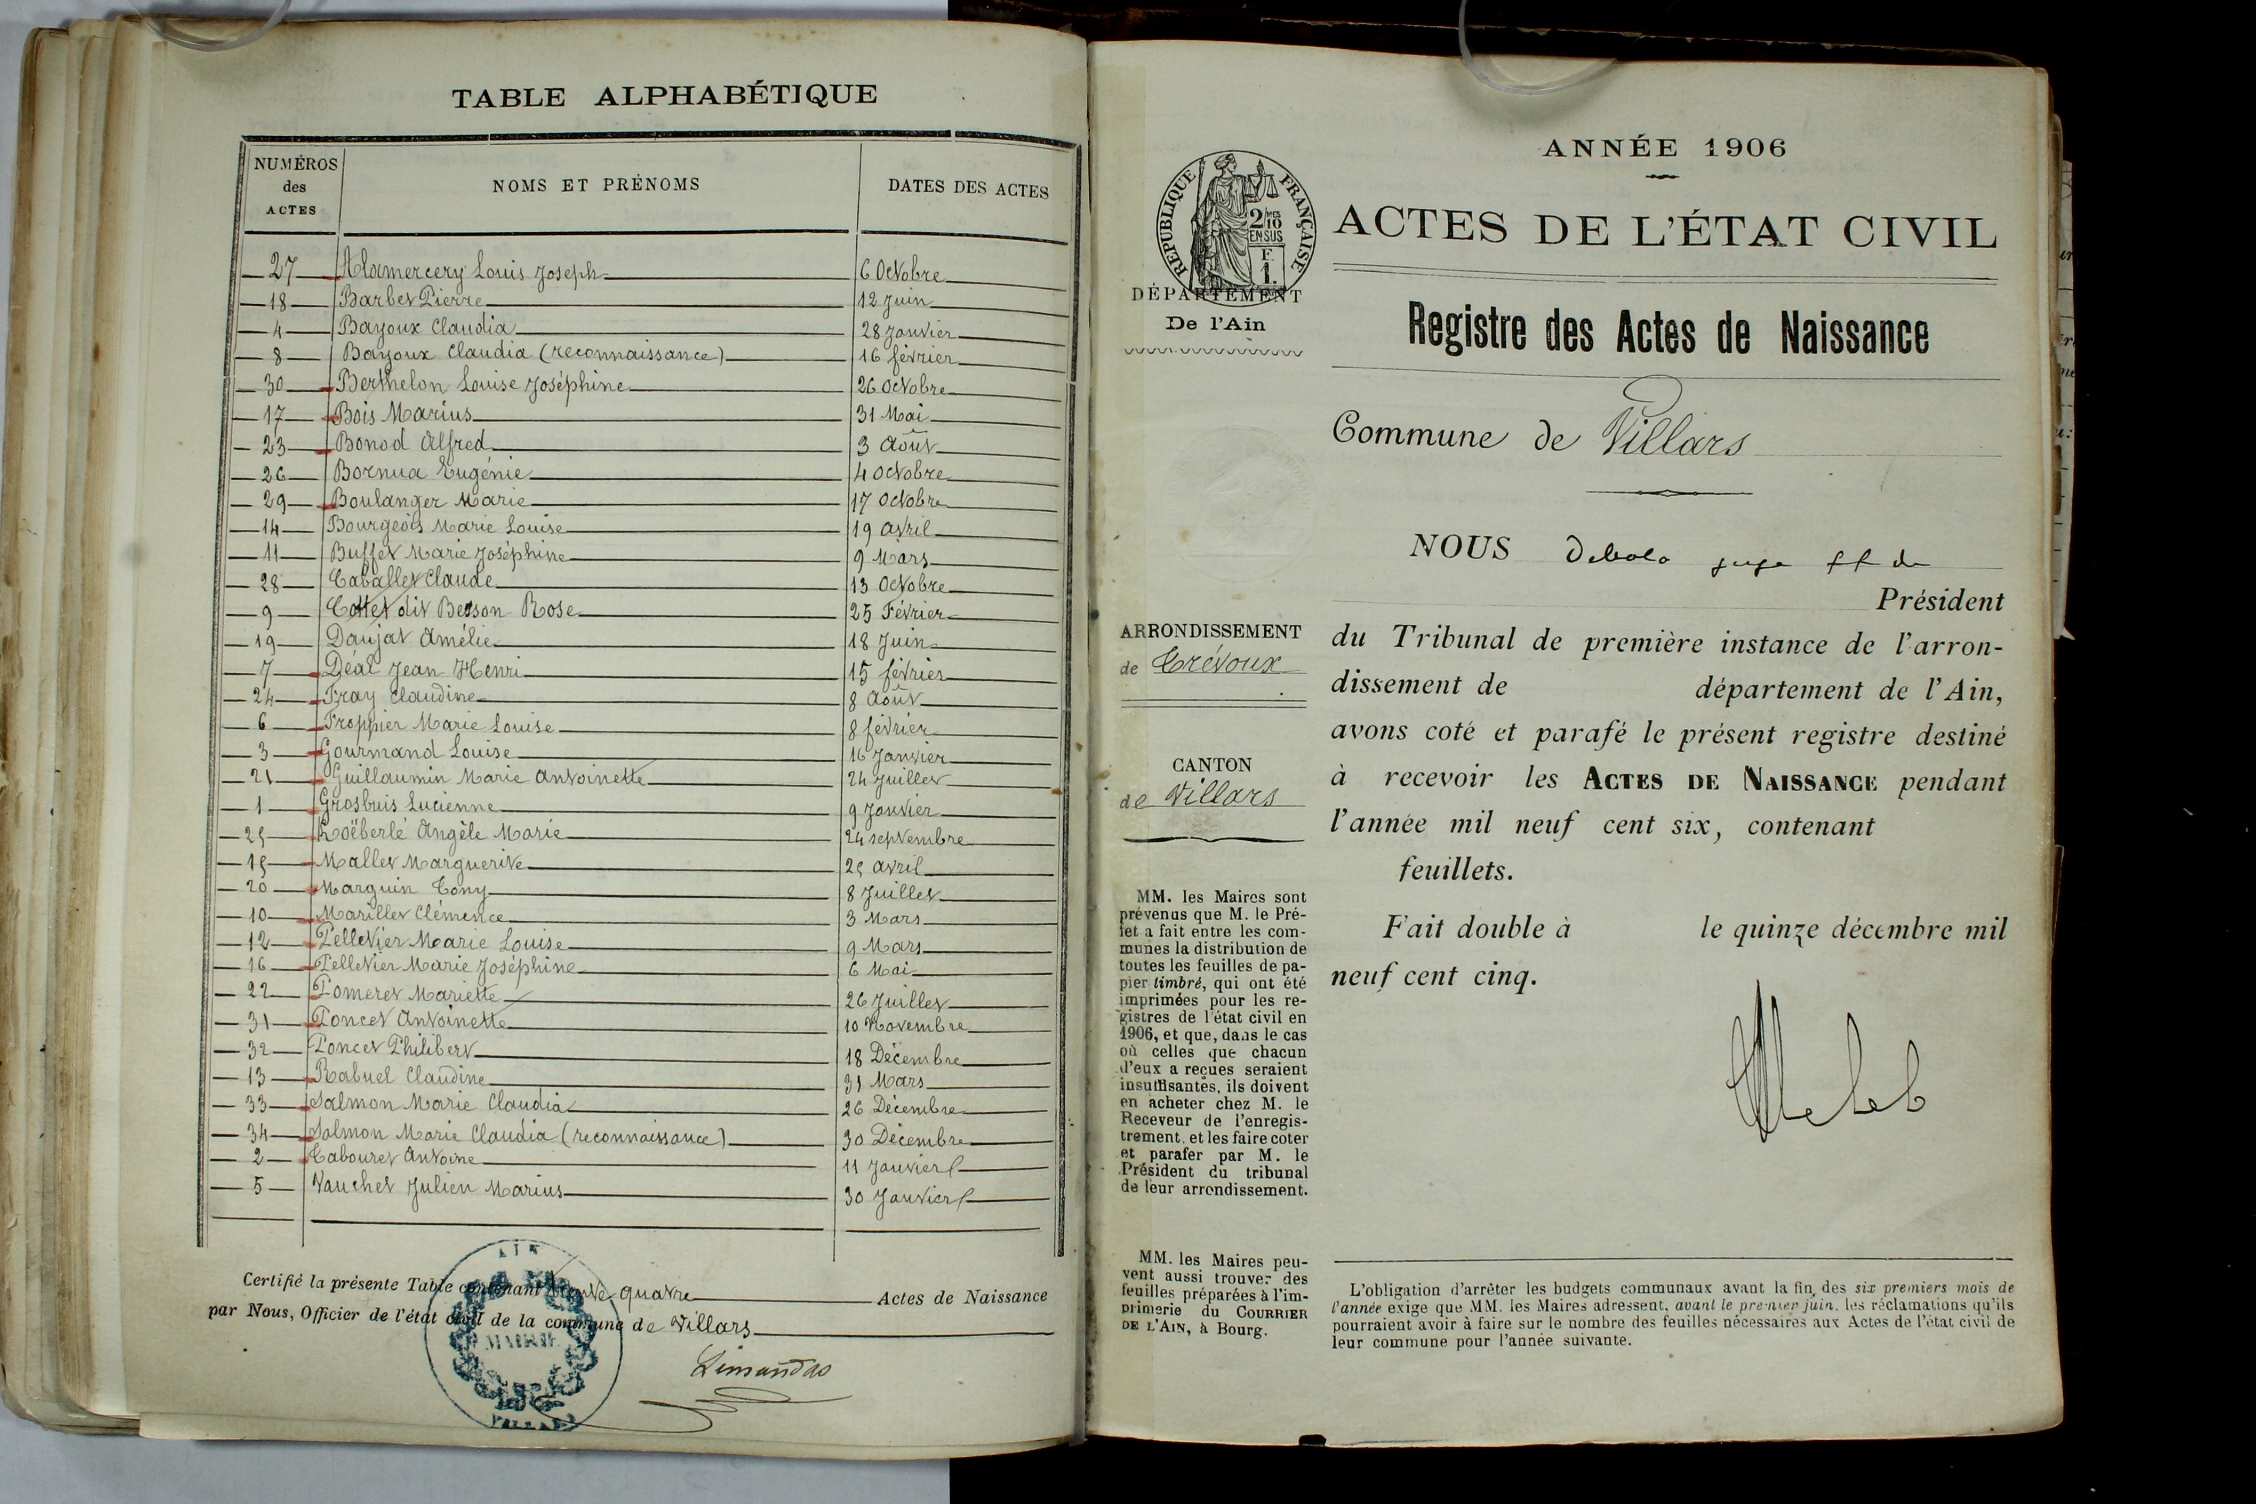 TABLE ALPHABÉTIQUE
NUMÉROS des ACTES NOMS ET PRÉNOMS DATES DES ACTES
27 Alamercery Louis Joseph 6 Octobre
18 Barbet Pierre 12 Juin
4 Bayoux Claudia 28 Janvier
8 Bayoux Claudia (reconnaissance) 16 février
30 Berthelon Louise Joséphine 26 Octobre
17 Bois Marius 31 Mai
23 Bonod Alfred 3 Août
26 Bornua Eugénie 4 Octobre
29 Boulanger Marie 17 Octobre
14 Bourgeois Marie Louise 19 avril
11 Buffet Marie Joséphine 9 Mars
28 Caballet Claude 13 Octobre
9 Cottet dit Besson Rose 25 Février
19 Daujat Amélie 18 Juin
7 Déal Jean Henri 15 février
24 Fray Claudine 8 Août
6 Froppier Marie Louise 8 février
3 Gourmand Louise 16 Janvier
21 Guillaumin Marie Antoinette 24 Juillet
1 Grosbuis Lucienne 9 Janvier
25 Koëberlé Angèle Marie 24 septembre
15 Mallet Marguerite 25 avril
20 Marguin Tony 8 Juillet
10 Marillet Clémence 3 Mars
12 Pelletier Marie Louise 9 Mars
16 Pelletier Marie Joséphine 6 Mai
22 Pomeret Mariette 26 Juillet
31 Poncet Antoinette 10 Novembre
32 Poncet Philibert 18 Décembre
13 Rabuel Claudine 31 Mars
33 Salmon Marie Claudia 26 Décembre
34 Salmon Marie Claudia (reconnaissance) 30 Décembre
2 Tabouret Antoine 11 Janvier
5 Vauchet Julien Marius 30 Janvier
Certifié la présente Table contenant trente quatre Actes de Naissance
par Nous, Officier de l'état civil de la commune de Villars
AIN
MAIRIE
VILLARS
ANNÉE 1906
RÉPUBLIQUE FRANÇAISE
2/10
EN SUS
F.
1.
ACTES DE L'ÉTAT CIVIL
DÉPARTEMENT
De l'Ain
Registre des Actes de Naissance
Commune de Villars
NOUS juge ff de
Président
du Tribunal de première instance de l'arron-
dissement de département de l'Ain,
avons coté et parafé le présent registre destiné
à recevoir les ACTES DE NAISSANCE pendant
l'année mil neuf cent six, contenant
feuillets.
Fait double à le quinze décembre mil
neuf cent cinq.
ARRONDISSEMENT
de Trévoux
CANTON
de Villars
MM. les Maires sont
prévenus que M. le Pré-
fet a fait entre les com-
munes la distribution de
toutes les feuilles de pa-
pier timbré, qui ont été
imprimées pour les re-
gistres de l'état civil en
1906, et que, dans le cas
où celles que chacun
d'eux a reçues seraient
insuffisantes, ils doivent
en acheter chez M. le
Receveur de l'enregis-
trement, et les faire coter
et parafer par M. le
Président du tribunal
de leur arrondissement.
MM. les Maires peu-
vent aussi trouver des
feuilles préparées à l'im-
primerie du COURRIER
DE L'AIN, à Bourg.
L'obligation d'arrêter les budgets communaux avant la fin des six premiers mois de
l'année exige que MM. les Maires adressent, avant le premier juin, les réclamations qu'ils
pourraient avoir à faire sur le nombre des feuilles nécessaires aux Actes de l'état civil de
leur commune pour l'année suivante.